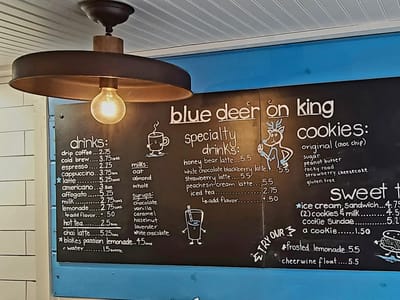 blue deer on king
drinks:
drip coffee 2.75
cold brew 3.75
espresso 2.25
cappuccino 3.75
latte 5.25
americano 3
affogato 5.25
milk 2.75
lemonade 2.75
add flavor .50
hot tea 2.5
chai latte 5.25
blakies passion lemonade 4.5
water 1.5
milks:
oat
almond
whole
syrups:
chocolate
vanilla
caramel
hazelnut
lavender
white chocolate
specialty
drinks:
honey bear latte 5.5
white chocolate blackberry latte 5.5
strawberry latte 5.5
peaches+cream latte 5.5
iced tea 2.75
add flavor .50
cookies:
original (choc chip)
sugar
peanut butter
rocky road
strawberry cheesecake
gluten free
sweet t
ice cream sandwich 4.75
(2) cookies & milk 4.5
cookie Sundae 5.
a cookie 1.5
TRY OUR
frosted lemonade 5.5
cheerwine float 5.5